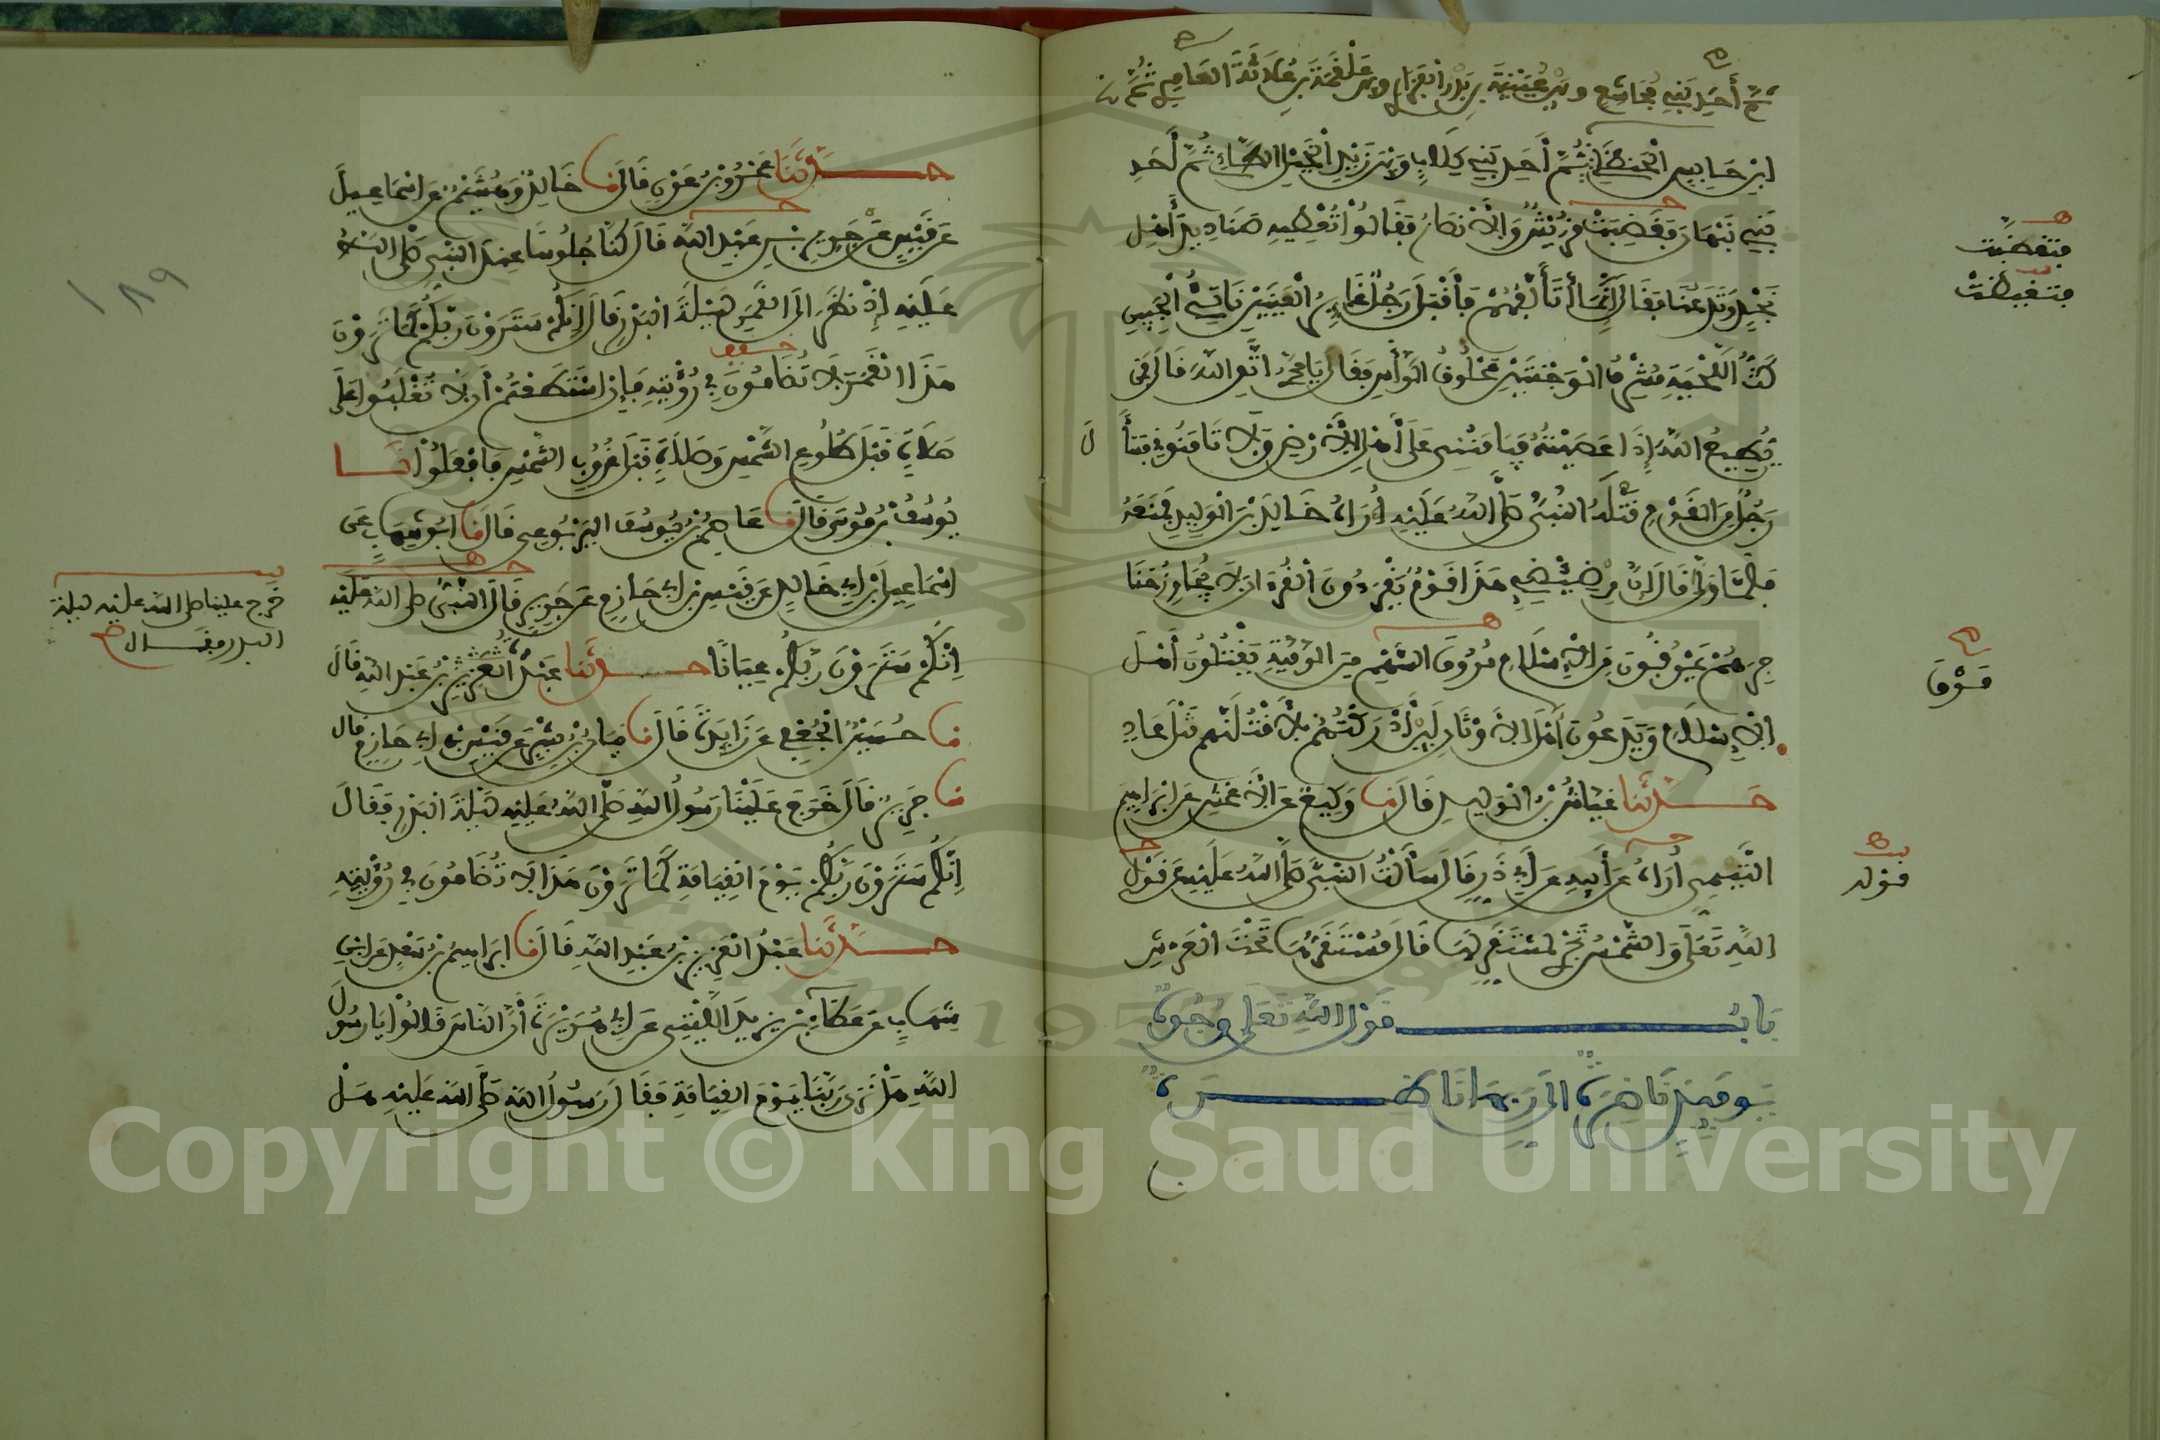 أحد بني مجاشع وبين عيينة بن بدر الفزاري وبين علقمة بن علاثة العامري ثم
ابن حابس الحنظلي ثم أحد بني كلاب وبين زيد الخيل الطائي ثم أحد
بني نبهان فغضبت قريش والأنصار فقالوا تعطيه صناديد أهل
نجد وتدعنا فقال إنما أتألفهم فأقبل رجل غائر العينين ناتئ الجبين
كث اللحية مشرف الوجنتين محلوق الرأس فقال يا محمد اتق الله قال فمن
يطيع الله إذا عصيته فيأمنني على أهل الأرض ولا تأمنوني فسأل
رجل من القوم قتله النبي صلى الله عليه أراه خالد بن الوليد فمنعه
فلما ولى قال إن من ضئضئ هذا قوم يقرءون القرءان لا يجاوز حنا
جرهم يمرقون من الإسلام مروق السهم من الرمية يقتلون أهل
الإسلام ويدعون أهل الأوثان لين أدركتهم لأقتلنهم قتل عاد
حدثنا عياش بن الوليد قال نا وكيع عن الأعمش عن إبراهيم
التيمي أراه عن أبيه عن أبي ذر قال سألت النبي صلى الله عليه عن قول
الله تعلى والشمس تجري لمستقر لها قال مستقرها تحت العرش
باب قول الله تعلى وجوه
يوميذ ناضرة إلى ربها ناظرة
فتغضبت
فتغيظت
قول
حدثنا عمرو بن عون قال نا خالد وهشيم عن اسماعيل
عن قيس عن جرير بن عبد الله قال كنا جلوسا عند النبي صلى الله
عليه إذ نظر إلى القمر ليلة البدر قال إنكم سترون ربكم كما ترون
هذا القمر لا تضامون في رؤيته فإن استطعتم أن لا تغلبوا على
صلاة قبل طلوع الشمس وصلاة قبل غروب الشمس فافعلوا نا
يوسف بن موسى قال نا عاصم بن يوسف اليربوعي قال نا ابو شهاب عن
اسماعيل بن أبي خالد عن قيس بن أبي حازم عن جرير قال النبي صلى الله عليه
إنكم سترون ربكم عيانا حدثنا عبدة بن عبد الله قال
نا حسين الجعفي عن زايدة قال نا بيان بن بشر عن قيس بن أبي حازم قال
نا جرير قال خرج علينا رسول الله صلى الله عليه ليلة البدر فقال
إنكم سترون ربكم يوم القيامة كما ترون هذا لا تضامون في رؤيته
حدثنا عبد العزيز بن عبد الله قال نا ابراهيم بن سعد عن ابن
شهاب عن عطاء بن يزيد الليثي عن أبي هريرة أن الناس قالوا يا رسول
الله هل نرى ربنا يوم القيامة فقال رسول الله صلى الله عليه هل
خرج علينا صلى الله عليه ليلة
البدر فقال
١٨٩
Copyright © King Saud University